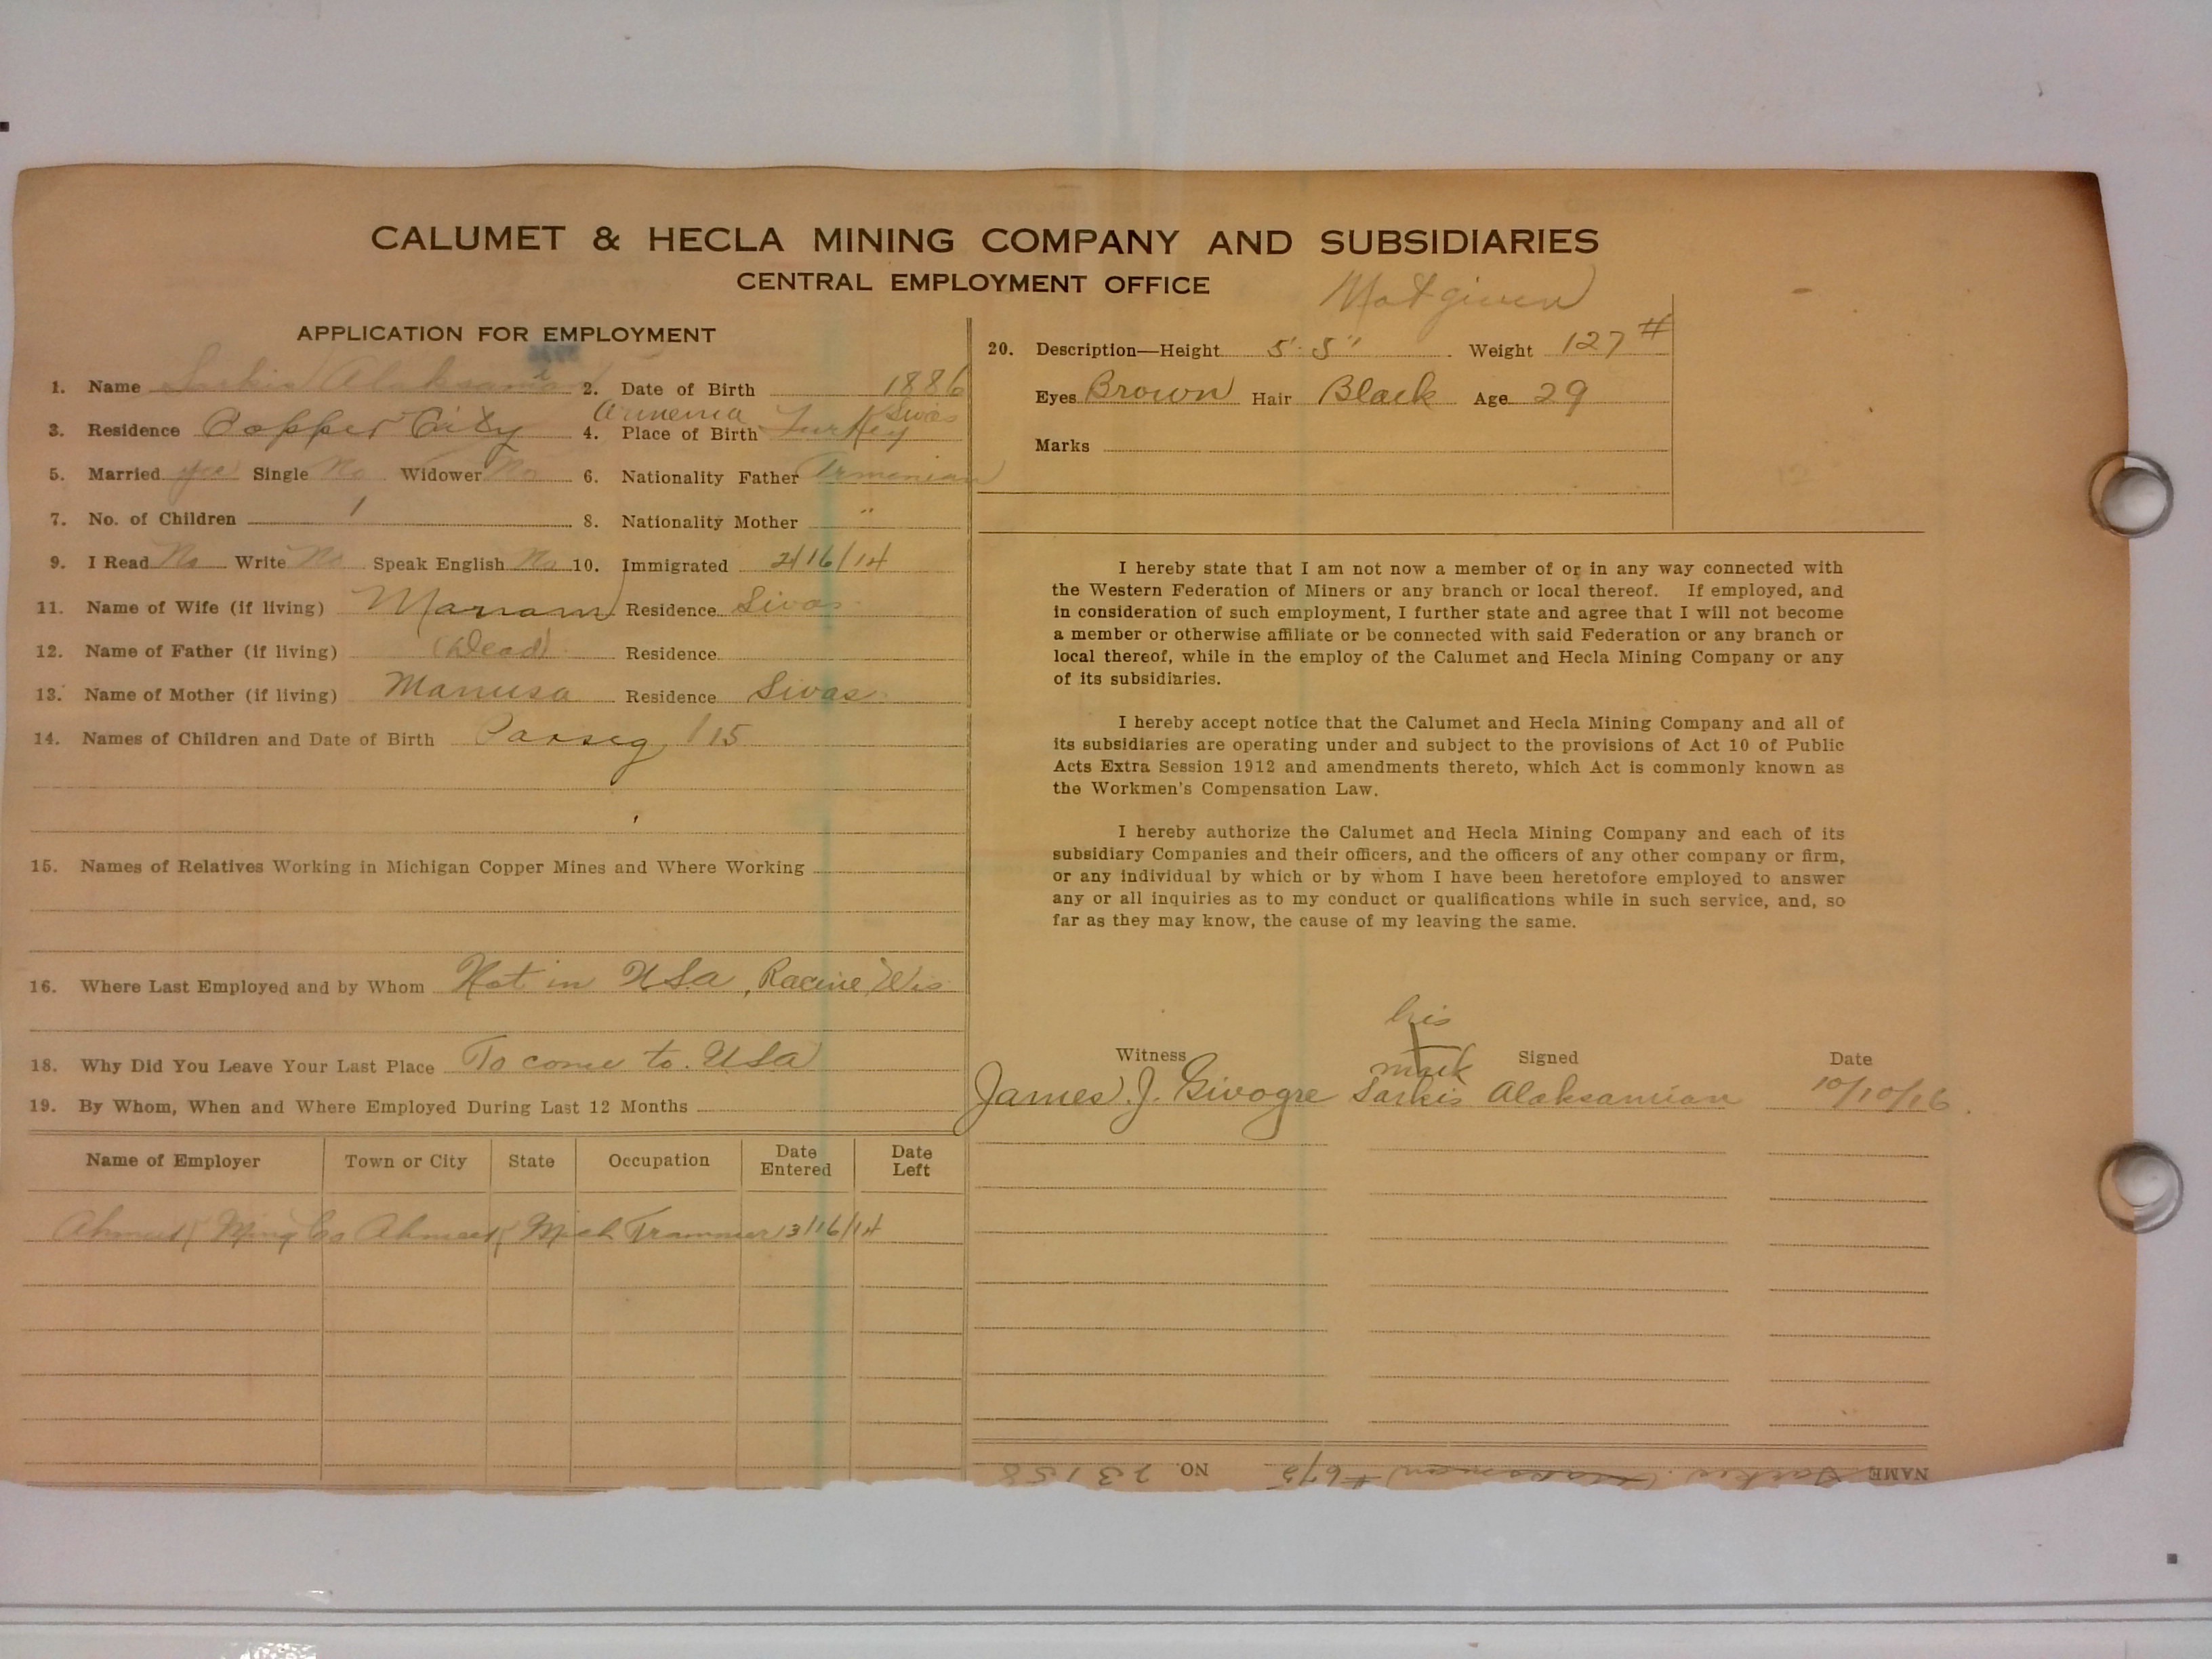 CALUMET & HECLA MINING COMPANY AND SUBSIDIARIES
CENTRAL EMPLOYMENT OFFICE
Not given
APPLICATION FOR EMPLOYMENT
1. Name Sarkis Alaksamian 2. Date of Birth 1886
Armenia Sivas
3. Residence Copper City 4. Place of Birth Turkey
5. Married yes Single No Widower No 6. Nationality Father Armenian
7. No. of Children 1 8. Nationality Mother "
9. I Read No Write No Speak English No 10. Immigrated 2/16/14
11. Name of Wife (if living) Mariam Residence Sivas
12. Name of Father (if living) (Dead) Residence
13. Name of Mother (if living) Manusa Residence Sivas
14. Names of Children and Date of Birth Parseg /15
15. Names of Relatives Working in Michigan Copper Mines and Where Working
16. Where Last Employed and by Whom Not in USa, Racine, Wis
18. Why Did You Leave Your Last Place To come to. USa
19. By Whom, When and Where Employed During Last 12 Months
Name of Employer Town or City State Occupation Date Entered Date Left
Ahmeek Ming Co Ahmeek Mich Trammer 3/16/14
20. Description—Height 5' 5" Weight 127 #
Eyes Brown Hair Black Age 29
Marks
I hereby state that I am not now a member of or in any way connected with
the Western Federation of Miners or any branch or local thereof. If employed, and
in consideration of such employment, I further state and agree that I will not become
a member or otherwise affiliate or be connected with said Federation or any branch or
local thereof, while in the employ of the Calumet and Hecla Mining Company or any
of its subsidiaries.
I hereby accept notice that the Calumet and Hecla Mining Company and all of
its subsidiaries are operating under and subject to the provisions of Act 10 of Public
Acts Extra Session 1912 and amendments thereto, which Act is commonly known as
the Workmen's Compensation Law.
I hereby authorize the Calumet and Hecla Mining Company and each of its
subsidiary Companies and their officers, and the officers of any other company or firm,
or any individual by which or by whom I have been heretofore employed to answer
any or all inquiries as to my conduct or qualifications while in such service, and, so
far as they may know, the cause of my leaving the same.
his
Witness mark Signed Date
James J. Givogre Sarkis Alaksamian 10/10/16.
NAME Sarkis #675 NO. 23158